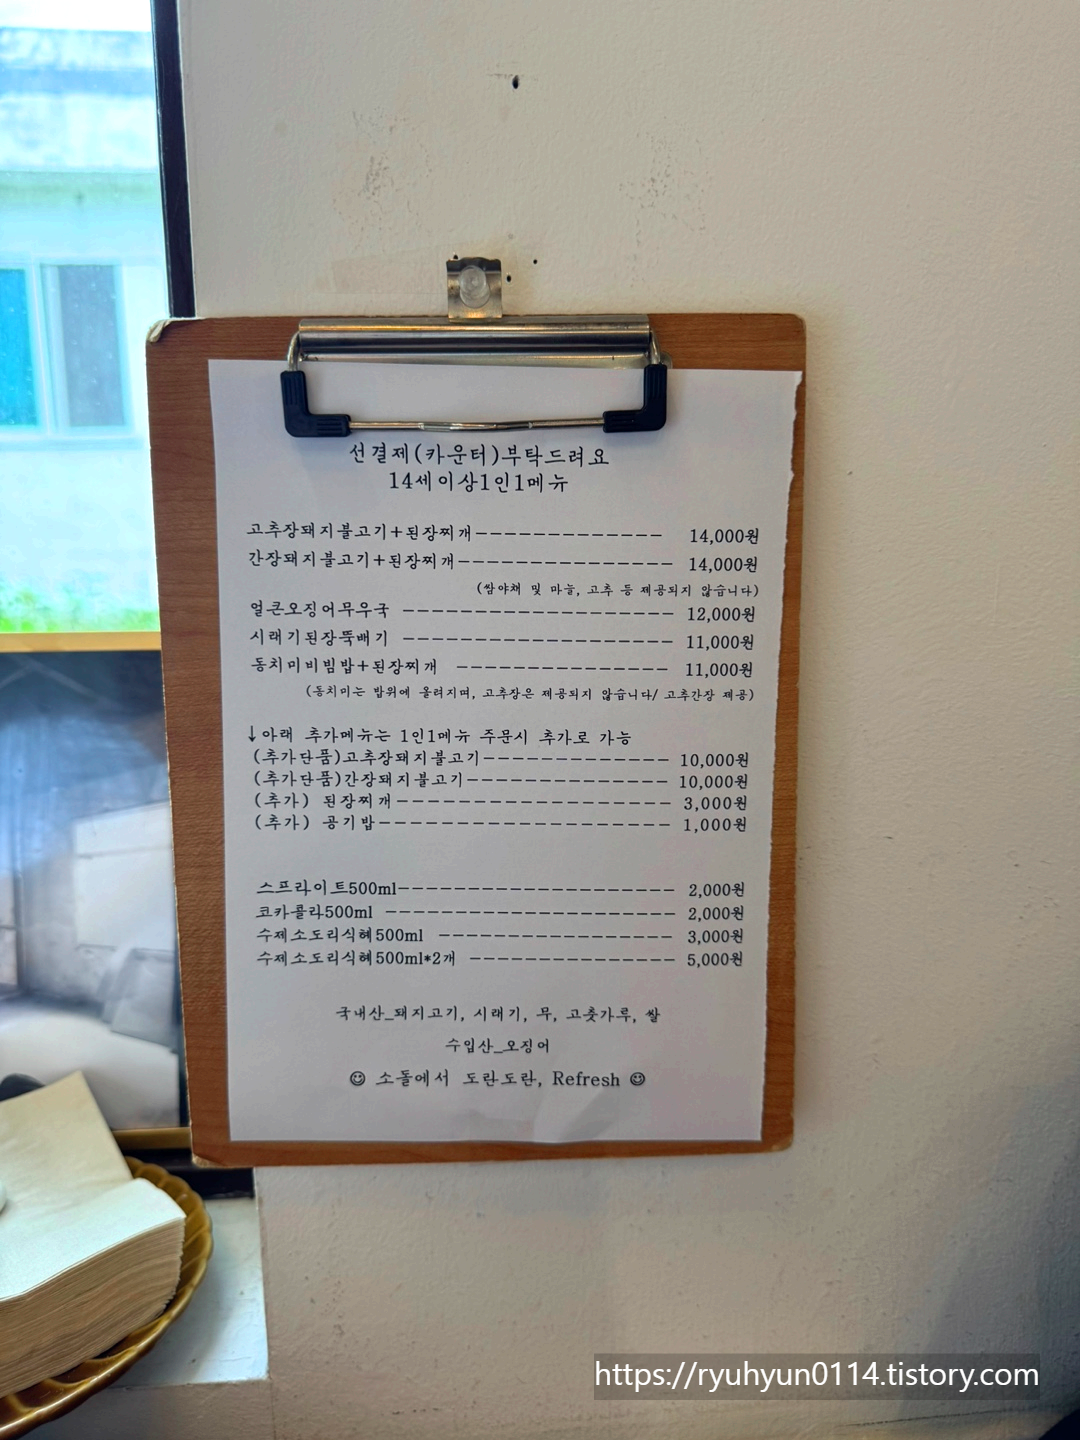 선결제(카운터)부탁드려요
14세이상1인1메뉴
고추장돼지불고기+된장찌개------------- 14,000원
간장돼지불고기+된장찌개--------------- 14,000원
(쌈야채 및 마늘, 고추 등 제공되지 않습니다)
얼큰오징어무우국 ------------------- 12,000원
시래기된장뚝배기 ------------------- 11,000원
동치미비빔밥+된장찌개 --------------- 11,000원
(동치미는 밥위에 올려지며, 고추장은 제공되지 않습니다/ 고추간장 제공)
↓아래 추가메뉴는 1인1메뉴 주문시 추가로 가능
(추가단품)고추장돼지불고기------------- 10,000원
(추가단품)간장돼지불고기-------------- 10,000원
(추가) 된장찌개------------------- 3,000원
(추가) 공기밥-------------------- 1,000원
스프라이트500ml------------------- 2,000원
코카콜라500ml -------------------- 2,000원
수제소도리식혜500ml ---------------- 3,000원
수제소도리식혜500ml*2개 -------------- 5,000원
국내산_돼지고기, 시래기, 무, 고춧가루, 쌀
수입산_오징어
☺ 소돌에서 도란도란, Refresh ☺
https://ryuhyun0114.tistory.com